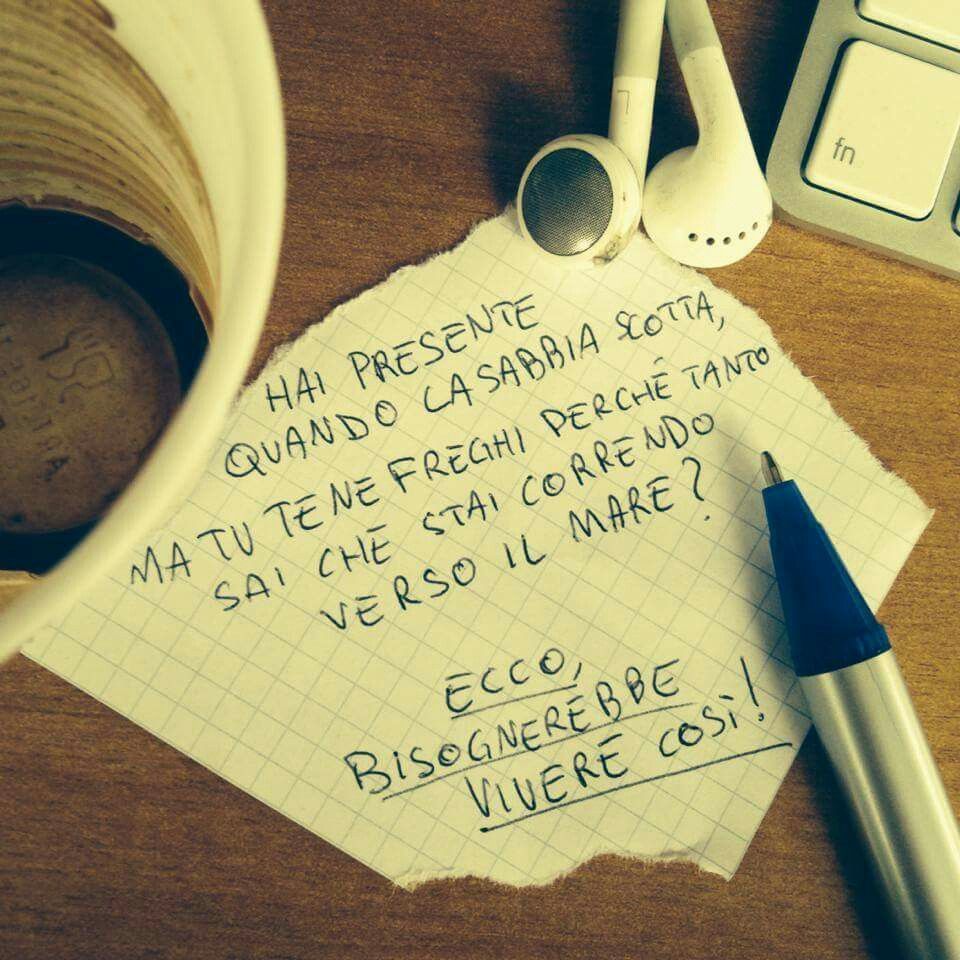 L
fn
HAI PRESENTE
QUANDO LA SABBIA SCOTTA,
MA TU TE NE FREGHI PERCHÉ TANTO
SAI CHE STAI CORRENDO
VERSO IL MARE?
ECCO,
BISOGNEREBBE
VIVERE COSÌ!